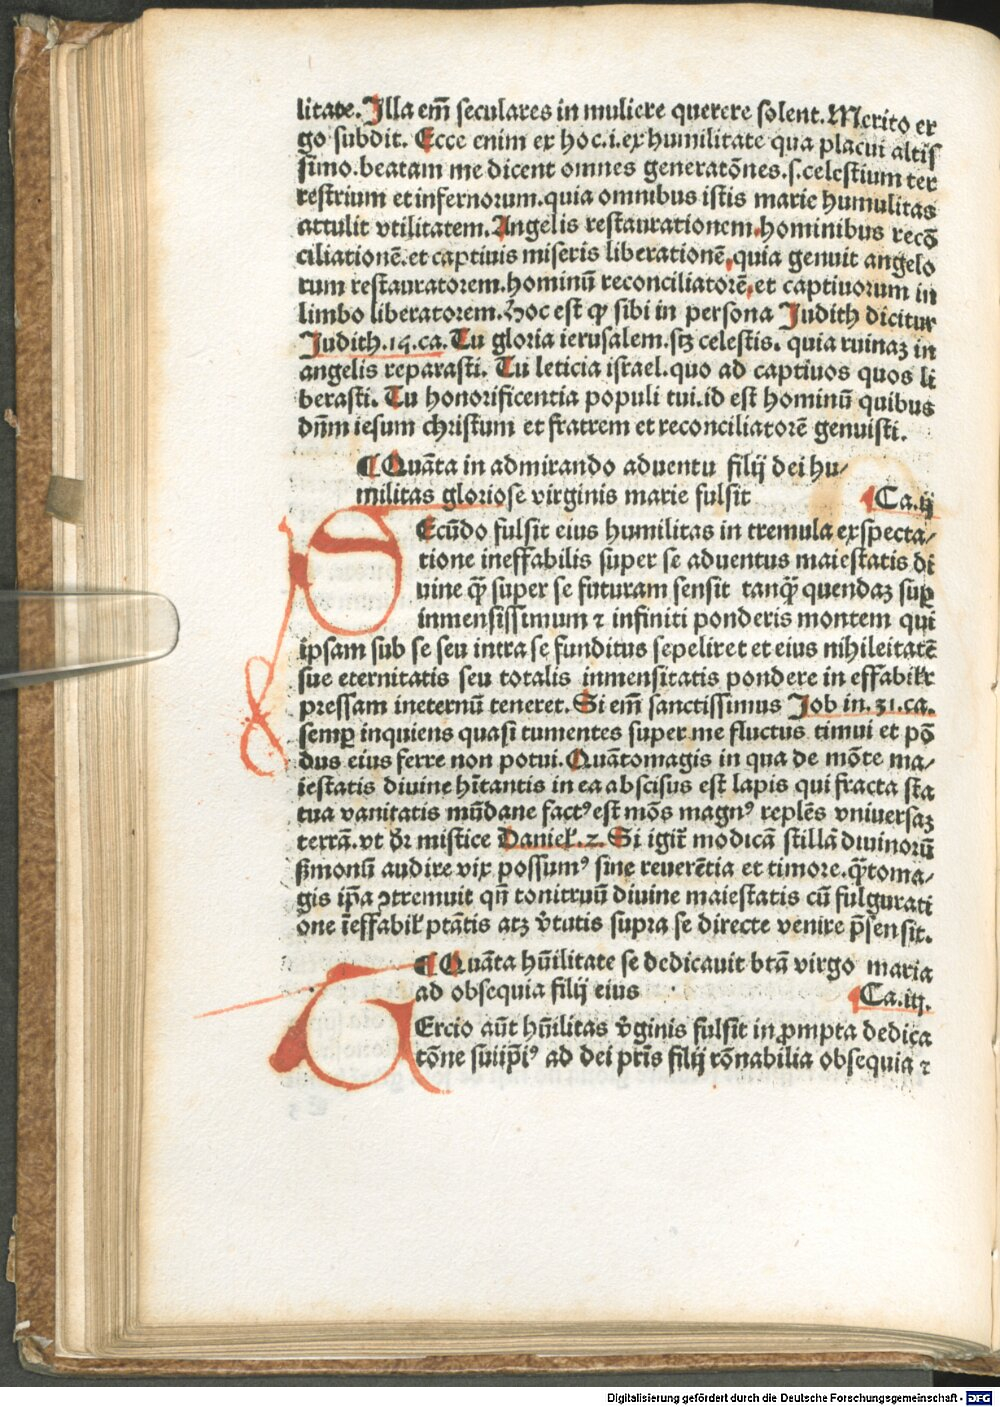 litate. Illa em̄ seculares in muliere querere solent. Merito er
go subdit. Ecce enim ex hoc .i. ex humilitate qua placui altis
simo. beatam me dicent omnes generatōnes .s. celestium ter
restrium et infernorum. quia omnibus istis marie humulitas
attulit vtilitatem. Angelis restaurationem. hominibus recō
ciliationē. et captiuis miseris liberationē, quia genuit angelo
rum restauratorem. hominū reconciliatorē, et captiuorum in
limbo liberatorem. Hoc est ꝙ sibi in persona Judith dicitur
Judith. 15. ca. Tu gloria ierusalem. stꝫ celestis. quia ruinaꝫ in
angelis reparasti. Tu leticia israel. quo ad captiuos quos li
berasti. Tu honorificentia populi tui. id est hominū quibus
dn̄m iesum christum et fratrem et reconciliatorē genuisti.
¶ Quāta in admirando aduentu filij dei hu/
militas gloriose virginis marie fulsit ¶ Ca. ij
SEcūdo fulsit eius humilitas in tremula exspecta/
tione ineffabilis super se aduentus maiestatis di
uine q̄ super se futuram sensit tanq̄ quendaꝫ suꝑ
inmensissimum ⁊ infiniti ponderis montem qui
ipsam sub se seu intra se funditus sepeliret et eius nihileitatē
sue eternitatis seu totalis inmensitatis pondere in effabilr̄
pressam ineternū teneret. Si em̄ sanctissimus Job in. 31. ca.
semꝑ inquiens quasi tumentes super me fluctus timui et pō
dus eius ferre non potui. Quātomagis in qua de mōte ma/
iestatis diuine hītantis in ea abscisus est lapis qui fracta sta
tua vanitatis mūdane factꝰ est mōs magnꝰ replēs vniuersaꝫ
terrā. vt dr̄ mistice Daniel. 2. Si igit̄ modicā stillā diuinorū
ßmonū audire vix possumꝰ sine reuerētia et timore. q̄toma/
gis ip̄a ꝯtremuit qn̄ tonitruū diuine maiestatis cū fulgurati
one īeffabil̄ ptātis atꝫ v̄tutis supra se directe venire p̄sensit.
¶ Quāta hūilitate se dedicauit btā virgo maria
ad obsequia filij eius ¶ Ca. iij.
TErcio aūt hūilitas v̄ginis fulsit in ꝓmpta dedica
tōne suiip̄iꝰ ad dei pr̄is filij rōnabilia obsequia ⁊
Digitalisierung gefördert durch die Deutsche Forschungsgemeinschaft - DFG